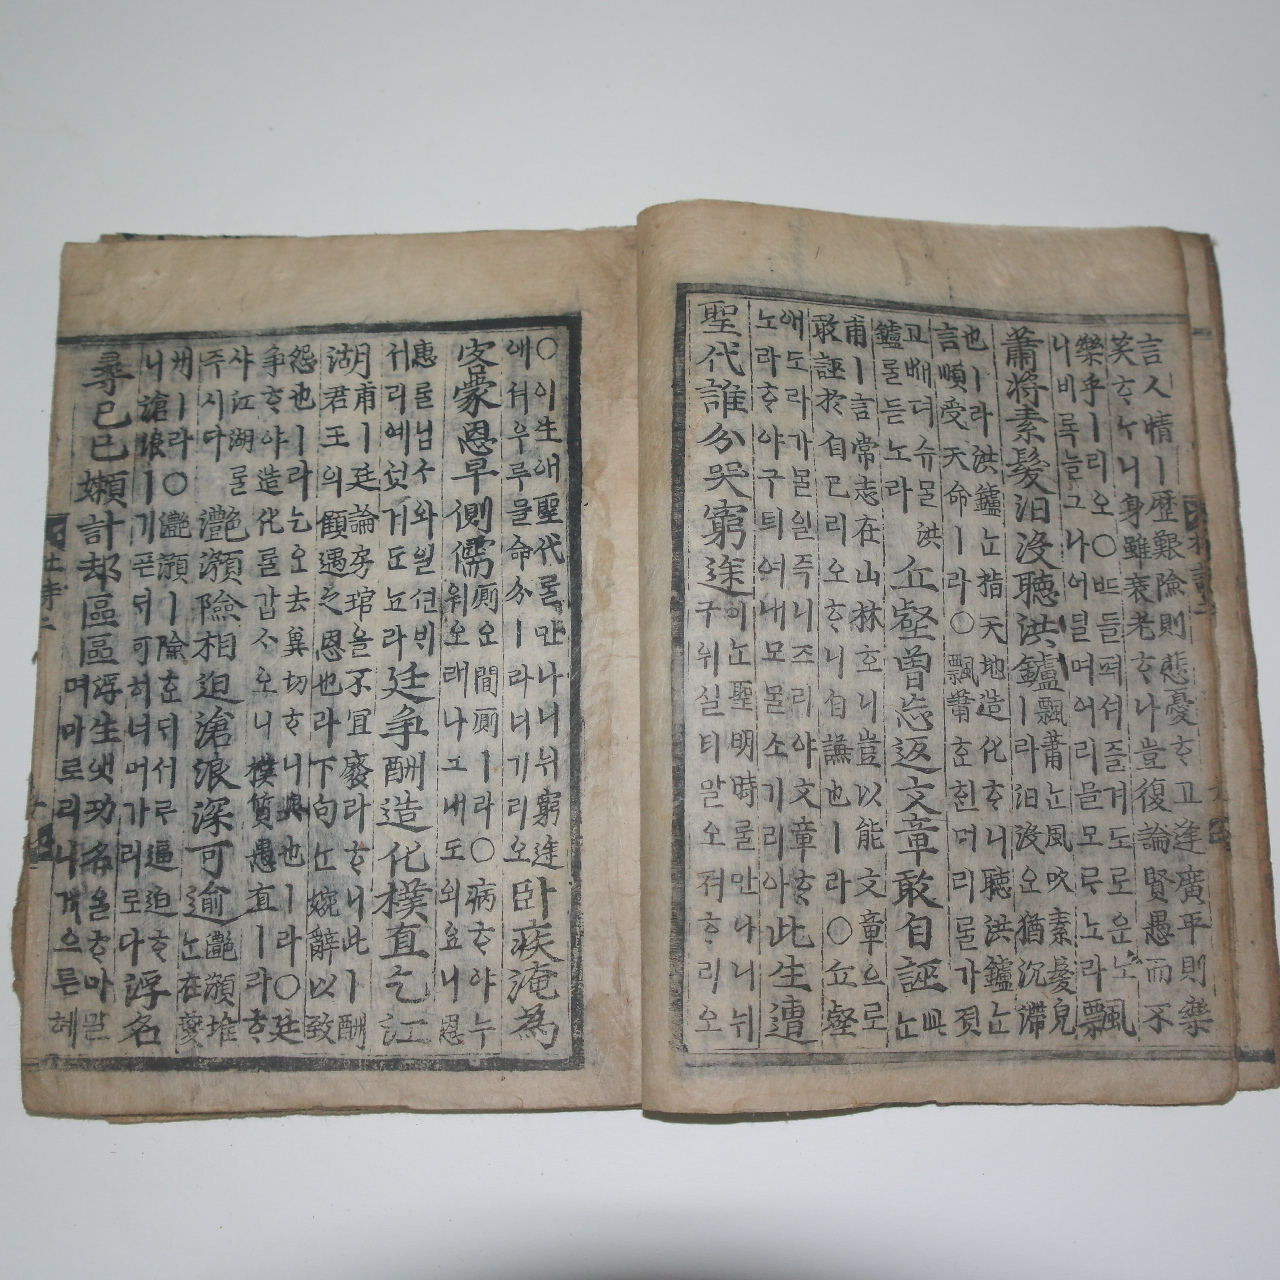 言人情ㅣ歷艱險則悲憂ᄒᆞ고逢廣平則樂
笑ᄒᆞᄂᆞ니身雖衰老ᄒᆞ나豈復論賢愚而不
樂乎ㅣ리오○ᄠᅳ들펴셔즐겨도로운노
니비록늘그나어딜며어리믈모ᄅᆞ노라飄
蕭將素髮汨沒聽洪鑪飄蕭ᄂᆞᆫ風吹素髮皃
ㅣ라汨沒오猶沉滯
也ㅣ라洪鑪ᄂᆞᆫ指天地造化ᄒᆞ니聽洪鑪ᄂᆞᆫ
言順受天命ㅣ라○飄蕭ᄒᆞᆫ머리ᄅᆞᆯ가져
고ᄢᅦ뎌슈믈洪
鑪ᄅᆞᆯ듣노라丘壑曾忘返文章敢自誣此ᄂᆞᆫ
甫ㅣ言常志在山林ᄒᆞ니豈以能文章으로
敢誣於自己리오ᄒᆞ니自謙也ㅣ라○丘壑
애도라가몰일즉니즈리야文章ᄒᆞ
노라ᄒᆞ야구틔여내모ᄆᆞᆯ소기리아此生遭
聖代誰分哭窮途이노聖明時ᄅᆞᆯ만나니뉘
구위실티말오져ᄒᆞ리오
○이生애聖代ᄅᆞᆯ만나니뉘窮途
애셔우루믈命分ㅣ라너기리오臥疾淹爲
客蒙恩早側儒厠오間厠ㅣ라○病ᄒᆞ야누
워오래나그내도외요니恩
惠ᄅᆞᆯ닙ᄉᆞ와일션ᄇᆡ
서리예섯거도뇨라廷爭酬造化樸直乞江
湖甫ㅣ廷論房琯을不宜廢라ᄒᆞ니此ㅣ酬
君王의顧遇之恩也라下句ᄂᆞᆫ婉辭以致
怨也ㅣ라乞오去冀切ᄒᆞ니與也ㅣ라○廷
爭ᄒᆞ야造化ᄅᆞᆯ갑ᄉᆞ오니樸質愚直ㅣ라ᄒᆞ
샤江湖ᄅᆞᆯ
주시다灔澦險相迫滄浪深可逾灔澦堆
ᄂᆞᆫ在夔
州ㅣ라○灔澦ㅣ險ᄒᆞ뎌서ᄅᆞ逼迫ᄒᆞ
니滄浪ㅣ기픈뎌可히너머가리로다浮名
尋已已嬾計却區區浮生앳功名을ᄒᆞ마말
며마로리니게으른혜